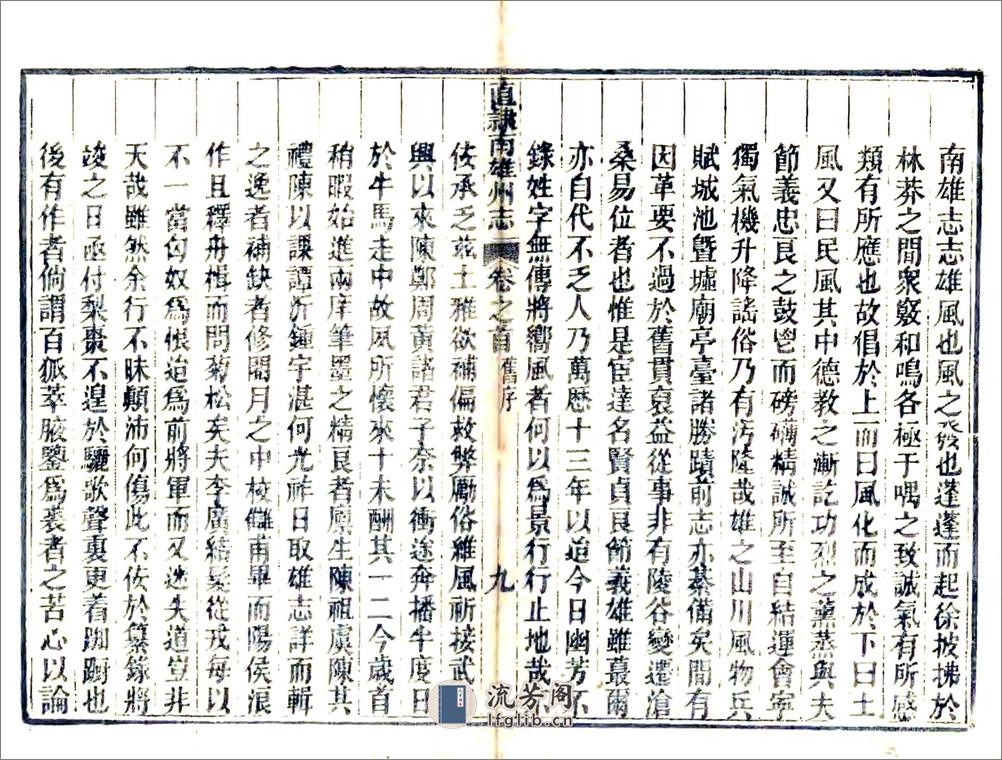 南雄志志雄風也風之發也蓬蓬而起徐披拂於
林莽之間衆竅和鳴各極于喁之致誠氣有所感
類有所應也故倡於上而曰風化而成於下曰土
風又曰民風其中德教之漸訖功烈之薰蒸與夫
節義忠良之鼓鬯而磅礴精誠所至自結運會寧
獨氣機升降謠俗乃有汚隆哉雄之山川風物兵
賦城池曁墟廟亭臺諸勝蹟前志亦綦備矣間有
因革要不過於舊貫裒益從事非有陵谷變遷滄
桑易位者也惟是宦達名賢貞良節義雄雖蕞爾
亦自代不乏人乃萬歷十三年以迨今日幽芳不
錄姓字無傳將嚮風者何以爲景行行止地哉不
直隷南雄州志 卷之首 舊序 九
佞承乏茲土雅欲補偏救弊勵俗維風祈接武
興以來陳鄭周黃諸君子奈以衝途奔播半度日
於牛馬走中故夙所懷來十未酬其一二今歲首
稍暇始進兩庠筆墨之精良者廪生陳祖虞陳其
禮陳以謙譚沂鍾宇湛何光祚日取雄志詳而輯
之逸者補缺者修閱月之中校讎甫畢而陽侯浪
作且釋舟楫而問菊松矣夫李廣結髮從戎每以
不一當匈奴爲恨迨爲前將軍而又迷失道豈非
天哉雖然余行不昧顚沛何傷此不佞於纂錄將
竣之日亟付梨棗不遑於驪歌聲裏更着踟蹰也
後有作者倘謂百狐萃腋鑒爲裘者之苦心以論
流芳阁
lfglib.cn